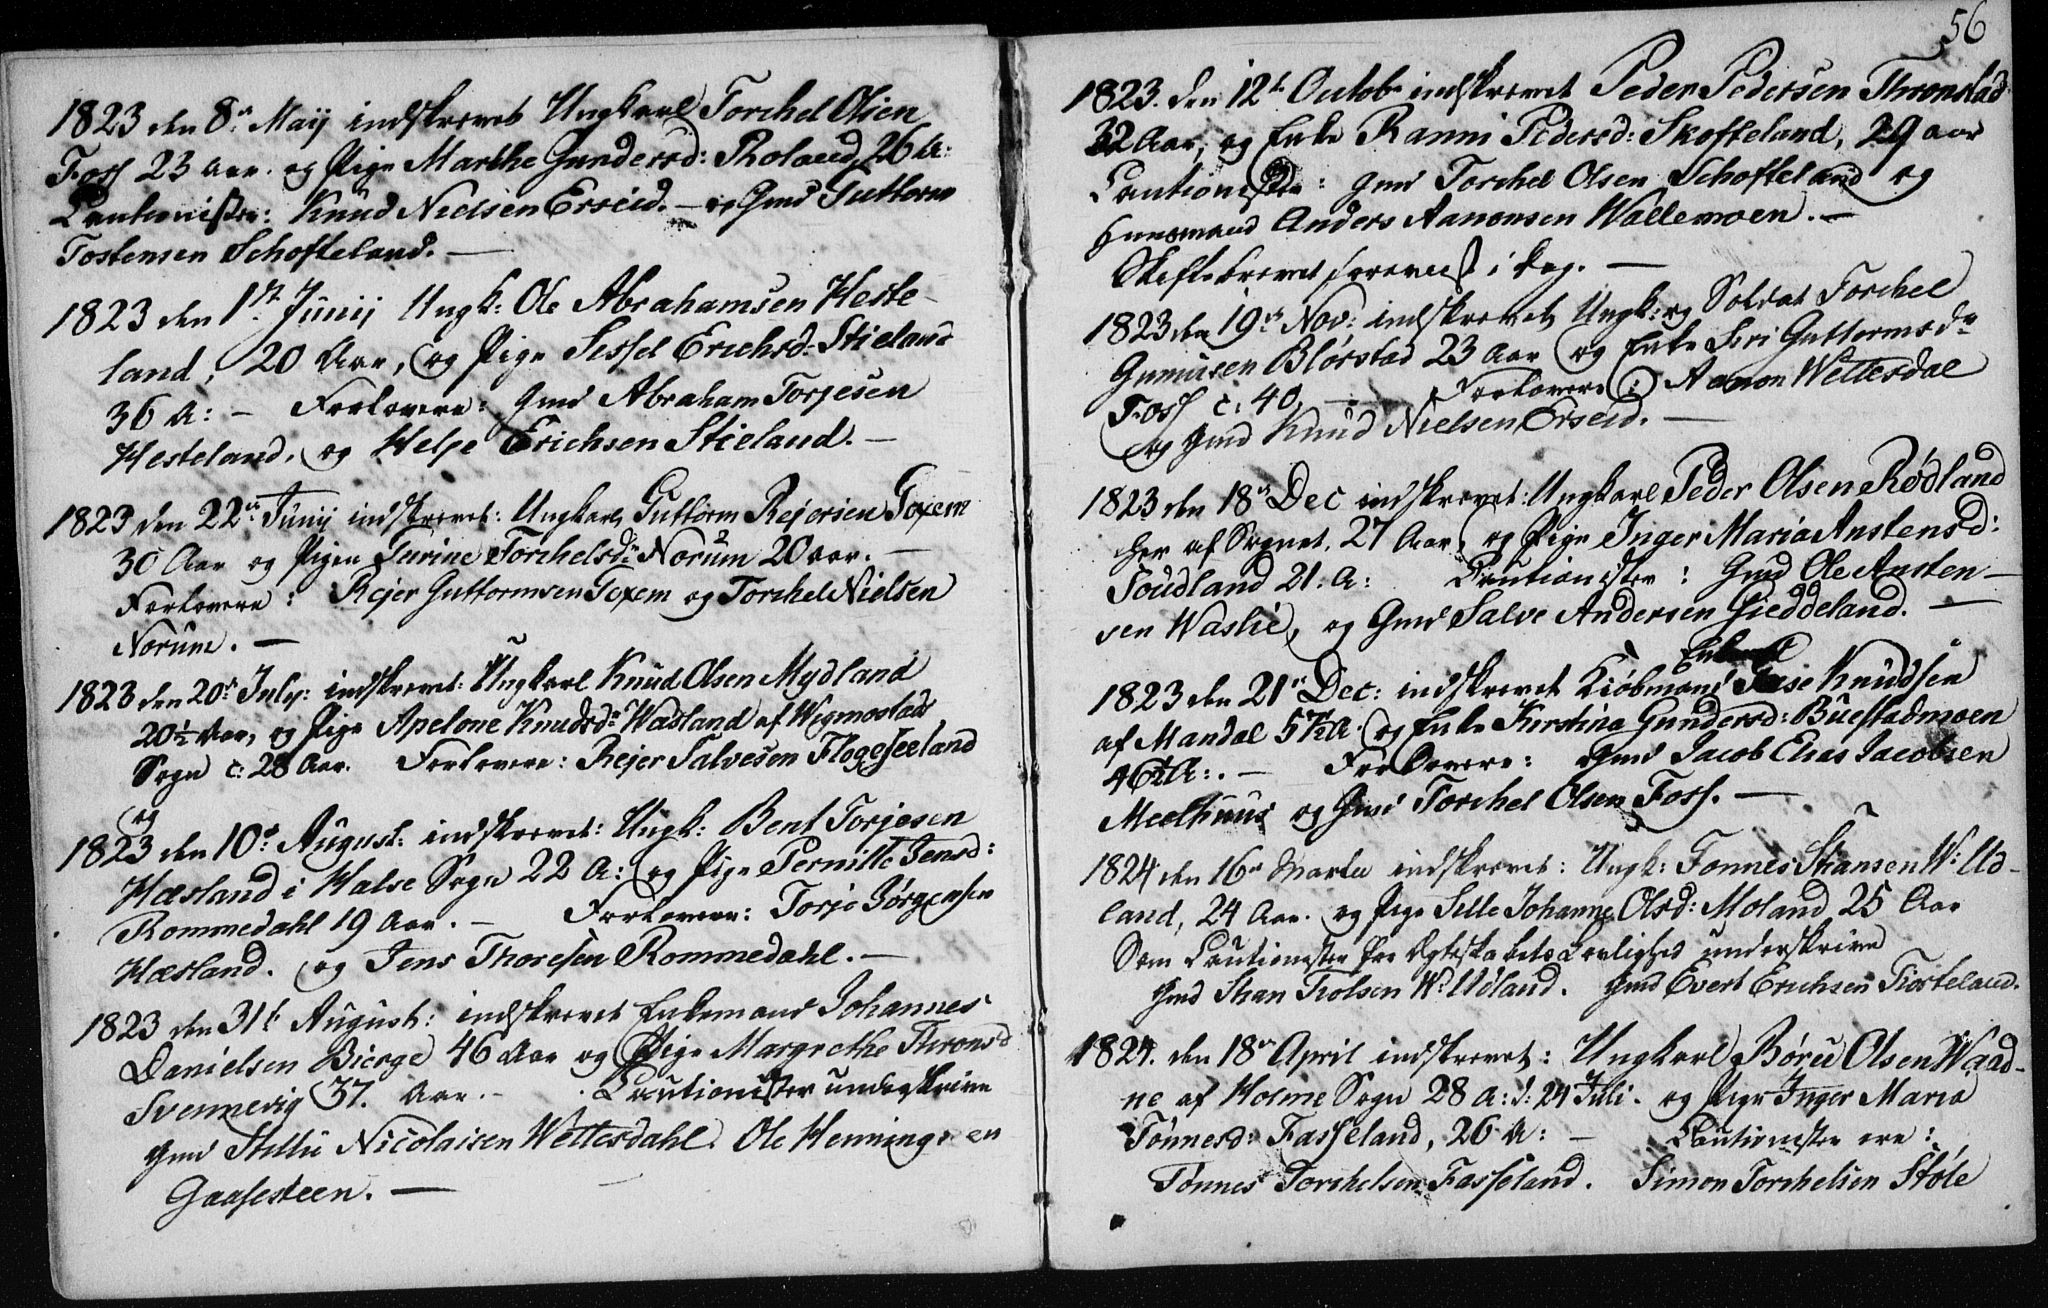 1823 den 8de Maij indskrevet Ungkarl Torchel Olsen
Foss 23 Aar. og Pige Marthe Gundersd: Tholand, 26 A:
Cautionister: Knud Nielsen Erseid. — og Gmd Guttorm
Tostensen Schofteland. —
1823 den 1ste Junij Ungk: Ole Abrahamsen Heste-
land, 20 Aar, og Pige Sissel Erichsd: Stieland
36 A: — Forlovere: Gmd Abraham Torjesen
Hesteland, og Helje Erichsen Stieland. —
1823 den 22de Junij indskrevet: Ungkarl Guttorm Rejersen Foxem
30 Aar og Pigen Turine Torchelsdr Norum 20 aar. —
Forlovere: Rejer Guttormsen Foxem og Torchel Nielsen
Norum. —
1823 den 20de July: indskrevet: Ungkarl Knud Olsen Mydland
20½ Aar, og Pige Apelone Knudsdr Wasland af Wigmostads
Sogn c: 28 Aar. Forlovere: Rejer Salvesen Flogefeeland
og
1823 den 10de August: indskrevet: Ungk: Bent Torjesen
Hæsland i Halse Sogn 22 A: og Pige Pernille Jensd:
Rommedahl 19 Aar. — Forlovere: Torje Jörgensen
Hæsland. og Jens Thoresen Rommedahl. —
1823 den 31te August: indskrevet Enkemand Johannes
Danielsen Bierge 46 Aar og Pige Margrethe Thronsd
Svennevig 37. Aar. — Cautionister underskrive
Gmd Stillu Nicolaisen Wettesdahl. Ole Henningsen
Gaasesteen. —
56
1823. den 12te Octobr indskrevet Peder Pedersen Thronstad
32 Aar, og Enke Ranni Pedersd: Skofteland, 29 aar
Cautionister: Gmd Torchel Olsen Schofteland og
Huusmand Anders Aanonsen Wallemoen. —
Skiftebrevet foreviist i Dag. —
1823 den 19de Nov: indskrevet Ungk: og Soldat Torchel
Gunnusen Blörstad 23 Aar og Enke Siri Guttormsdr
Foss c: 40. — Forlovere: Aanon Wettesdal
og Gmd Knud Nielsen Erseid. —
1823 den 18de Dec indskrevet: Ungkarl Peder Olsen Rödland
her af Sognet, 27 Aar, og Pige Inger Maria Anstensd:
Foudland 21. A: Cautionister: Gmd Ole Ansten-
sen Waslie, og Gmd Salve Andersen Gieddeland. —
Enkemd
1823 den 21de Dec: indskrevet Kiöbmand Jase Knudsen
af Mandal 57½ A. og Enke Kirstina Gundersd: Buestadmoen
46½ A:. — Forlovere: Gmd Jacob Elias Jacobsen
Meelhuus og Gmd Torchel Olsen Foss. —
1824 den 16de Martii indskrevet: Ungk: Tonnes Skansen W: Ud-
land, 24 Aar. og Pige Sille Johanne Olsd: Moland 25 Aar
Som Cautionister for Ægteskabets Lovlighed underskrive
Gmd Skan Trolsen W: Udland. Gmd Evert Erichsen Tiorteland.
1824. den 18de April indskrevet: Ungkarl Böru Olsen Waad-
ne af Holme Sogn 28 A: d: 24 Juli. og Pige Inger Maria
Tönnesd: Fasseland, 26 A: — Cautionister ere:
Tönnes Torchelsen Fasseland. Simon Torchelsen Stöle